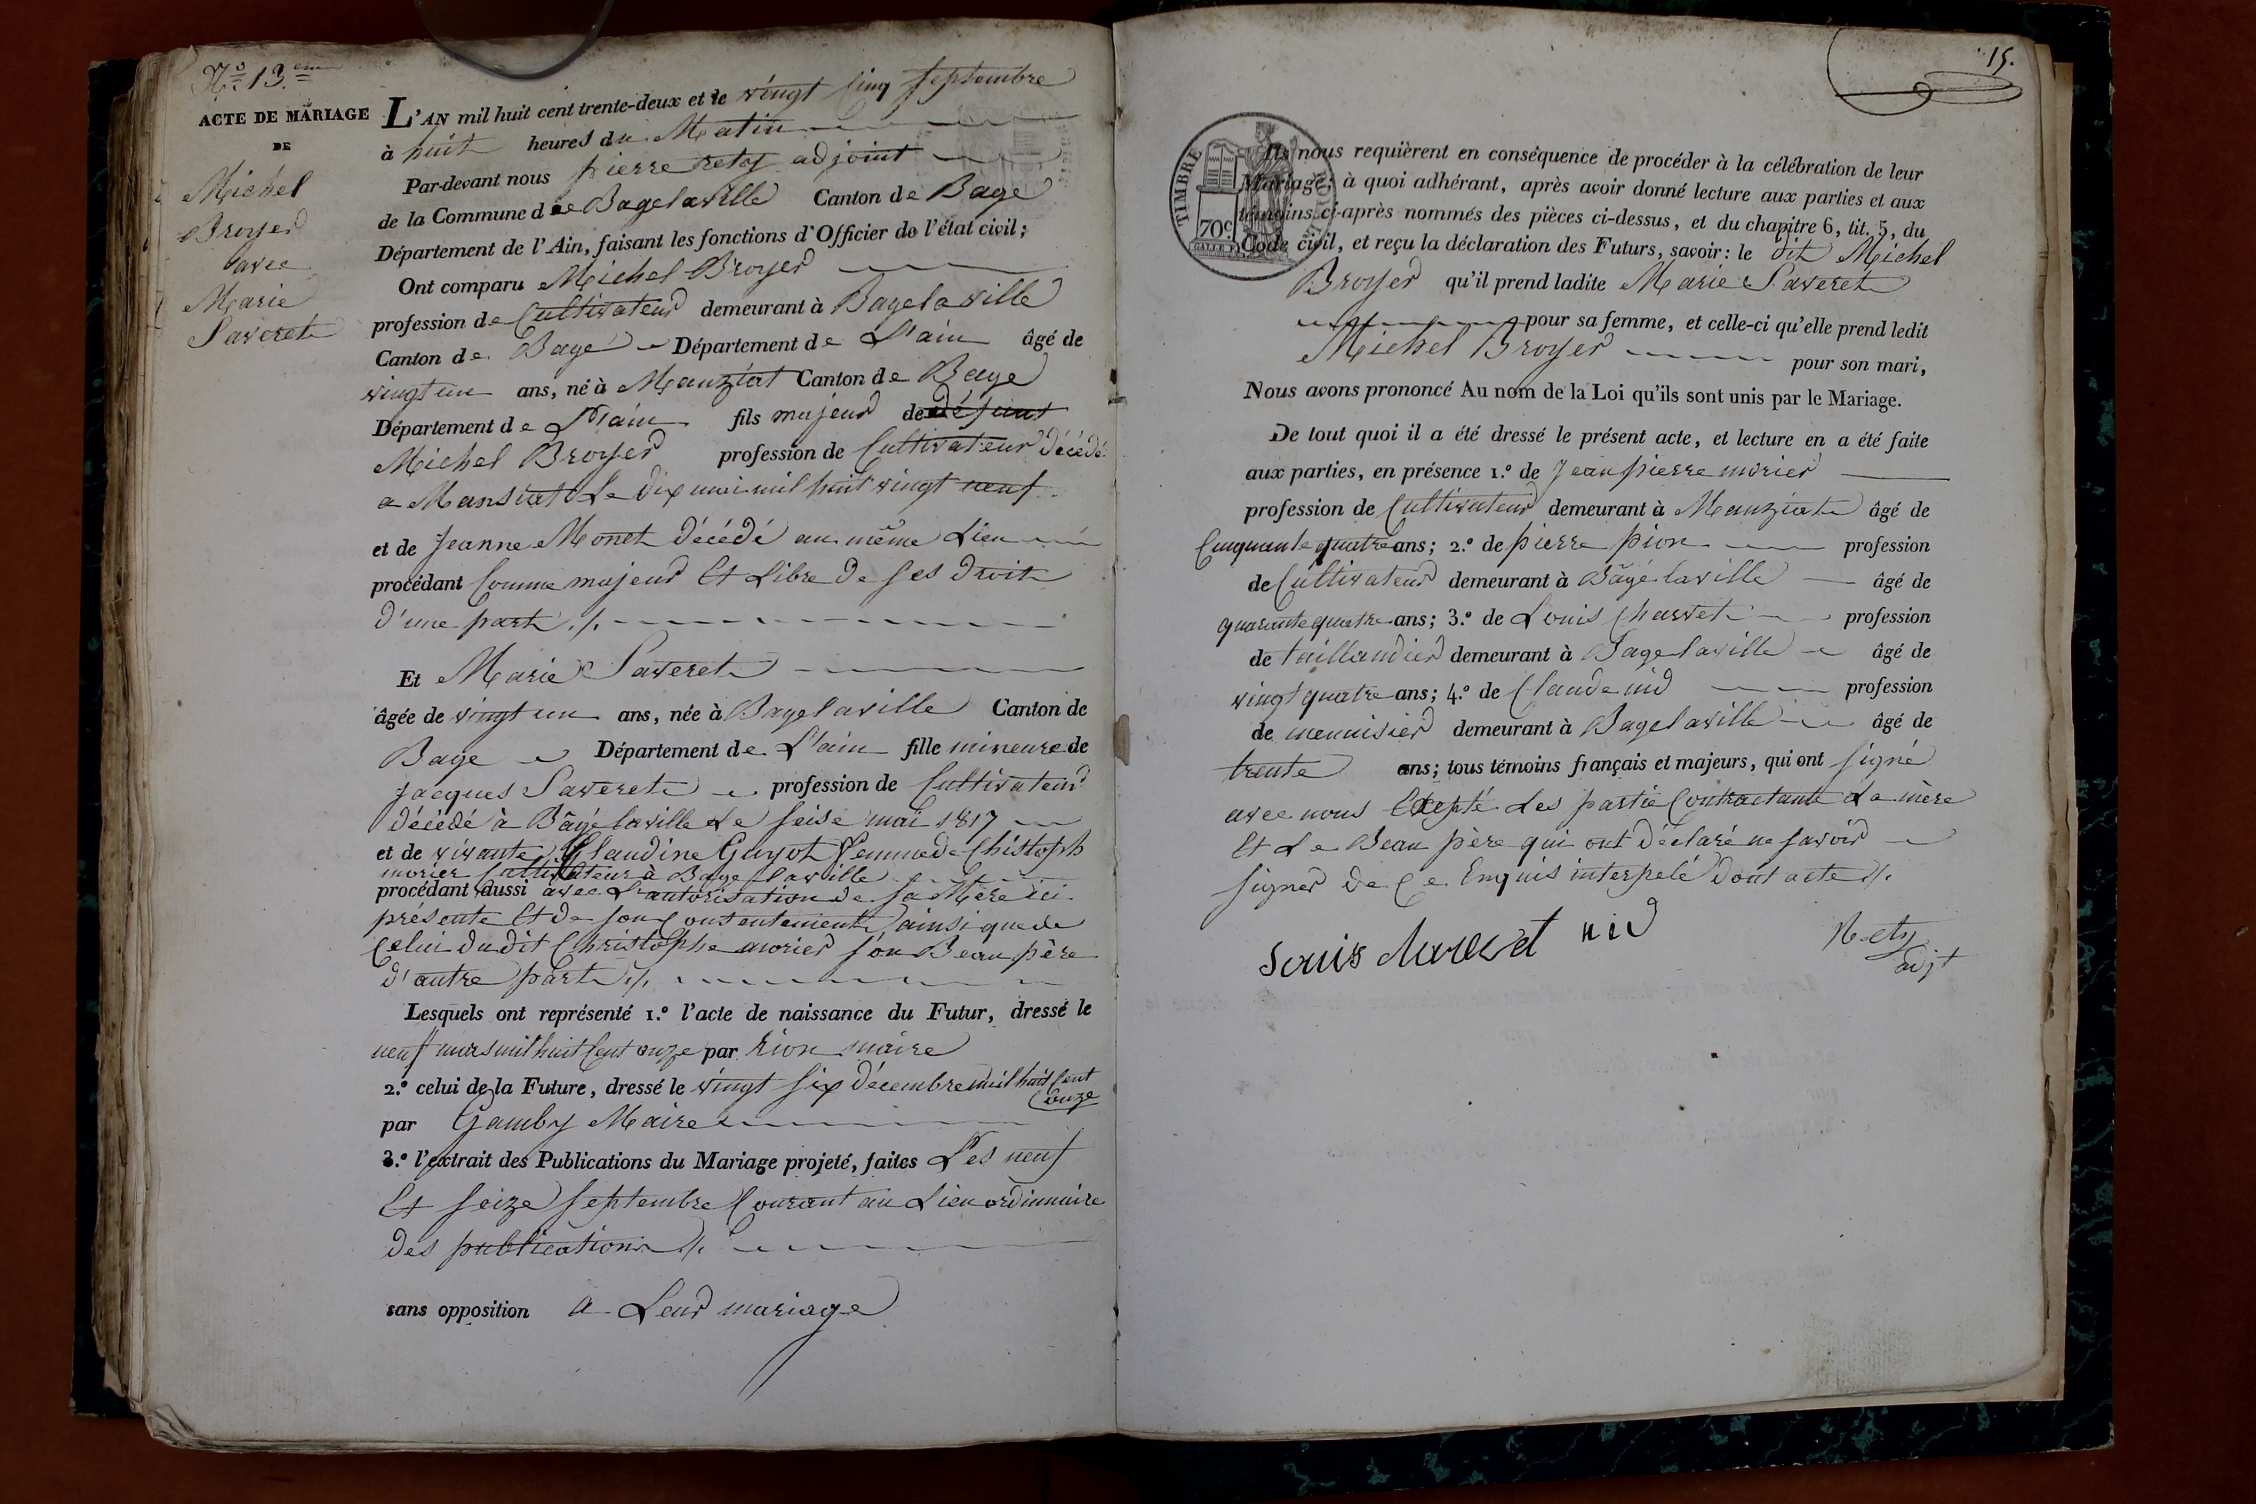 N.º 13.eme
ACTE DE MARIAGE
DE
Michel
Broyer
avec
Marie
Saveret
L'AN mil huit cent trente-deux et le vingt cinq septembre
à huit heures du Matin
Par-devant nous pierre rety adjoint
de la Commune de Bagelaville Canton de Bage
Département de l'Ain, faisant les fonctions d'Officier de l'état civil;
Ont comparu Michel Broyer
profession de Cultivateur demeurant à Bagelaville
Canton de Bagé Département de L'ain âgé de
vingt un ans, né à Manziat Canton de Bage
Département de L'ain fils majeur de défunt
Michel Broyer profession de Cultivateur décédé
a Mansiat Le dix mai mil huit vingt neuf
et de Jeanne Monet décédé au même Lieu
procédant Comme majeur Et Libre de ses droit
d'une part ./.
Et Marie Saveret
âgée de vingt un ans, née à Bagelaville Canton de
Bage Département de L'ain fille mineure de
Jacques Saveret profession de Cultivateur
décédé à Bâgé laville Le seise mai 1817
et de vivante Claudine Guyot femme de Christoph
morier Cultivateur à Bage laville
procédant aussi avec L'autorisation de sa Mère ici
présente Et de son Contentement ainsi que de
Celui dudit Christophe morier son Beau père
d'autre part ./.
Lesquels ont représenté 1.º l'acte de naissance du Futur, dressé le
neuf mars mil huit Cent onze par Rion maire
2.º celui de la Future, dressé le vingt six décembre mil huit Cent
onze
par Gamby Maire
3.º l'extrait des Publications du Mariage projeté, faites Les neuf
Et seize septembre Courant au Lieu ordinnaire
des publications ./.
sans opposition a Leur mariage
15.
TIMBRE
70c.
Ils nous requièrent en conséquence de procéder à la célébration de leur
Mariage; à quoi adhérant, après avoir donné lecture aux parties et aux
témoins ci-après nommés des pièces ci-dessus, et du chapitre 6, tit. 5, du
Code civil, et reçu la déclaration des Futurs, savoir: le dit Michel
Broyer qu'il prend ladite Marie Saveret
pour sa femme, et celle-ci qu'elle prend ledit
Michel Broyer pour son mari,
Nous avons prononcé Au nom de la Loi qu'ils sont unis par le Mariage.
De tout quoi il a été dressé le présent acte, et lecture en a été faite
aux parties, en présence 1.º de Jean pierre morier
profession de Cultivateur demeurant à Manziat âgé de
Cinquante quatre ans; 2.º de pierre pion profession
de Cultivateur demeurant à Bâgé laville âgé de
quarante quatre ans; 3.º de Louis Charvet profession
de taillandier demeurant à Bage laville âgé de
vingt quatre ans; 4.º de Claude nid profession
de menuisier demeurant à Bagelaville âgé de
trente ans; tous témoins français et majeurs, qui ont signé
avec nous Excepté Les partie Contractante La mère
Et Le Beau père qui ont déclaré ne savoir
signer de Ce Enquis interpelé dont acte ./.
nid
Rety
adjt